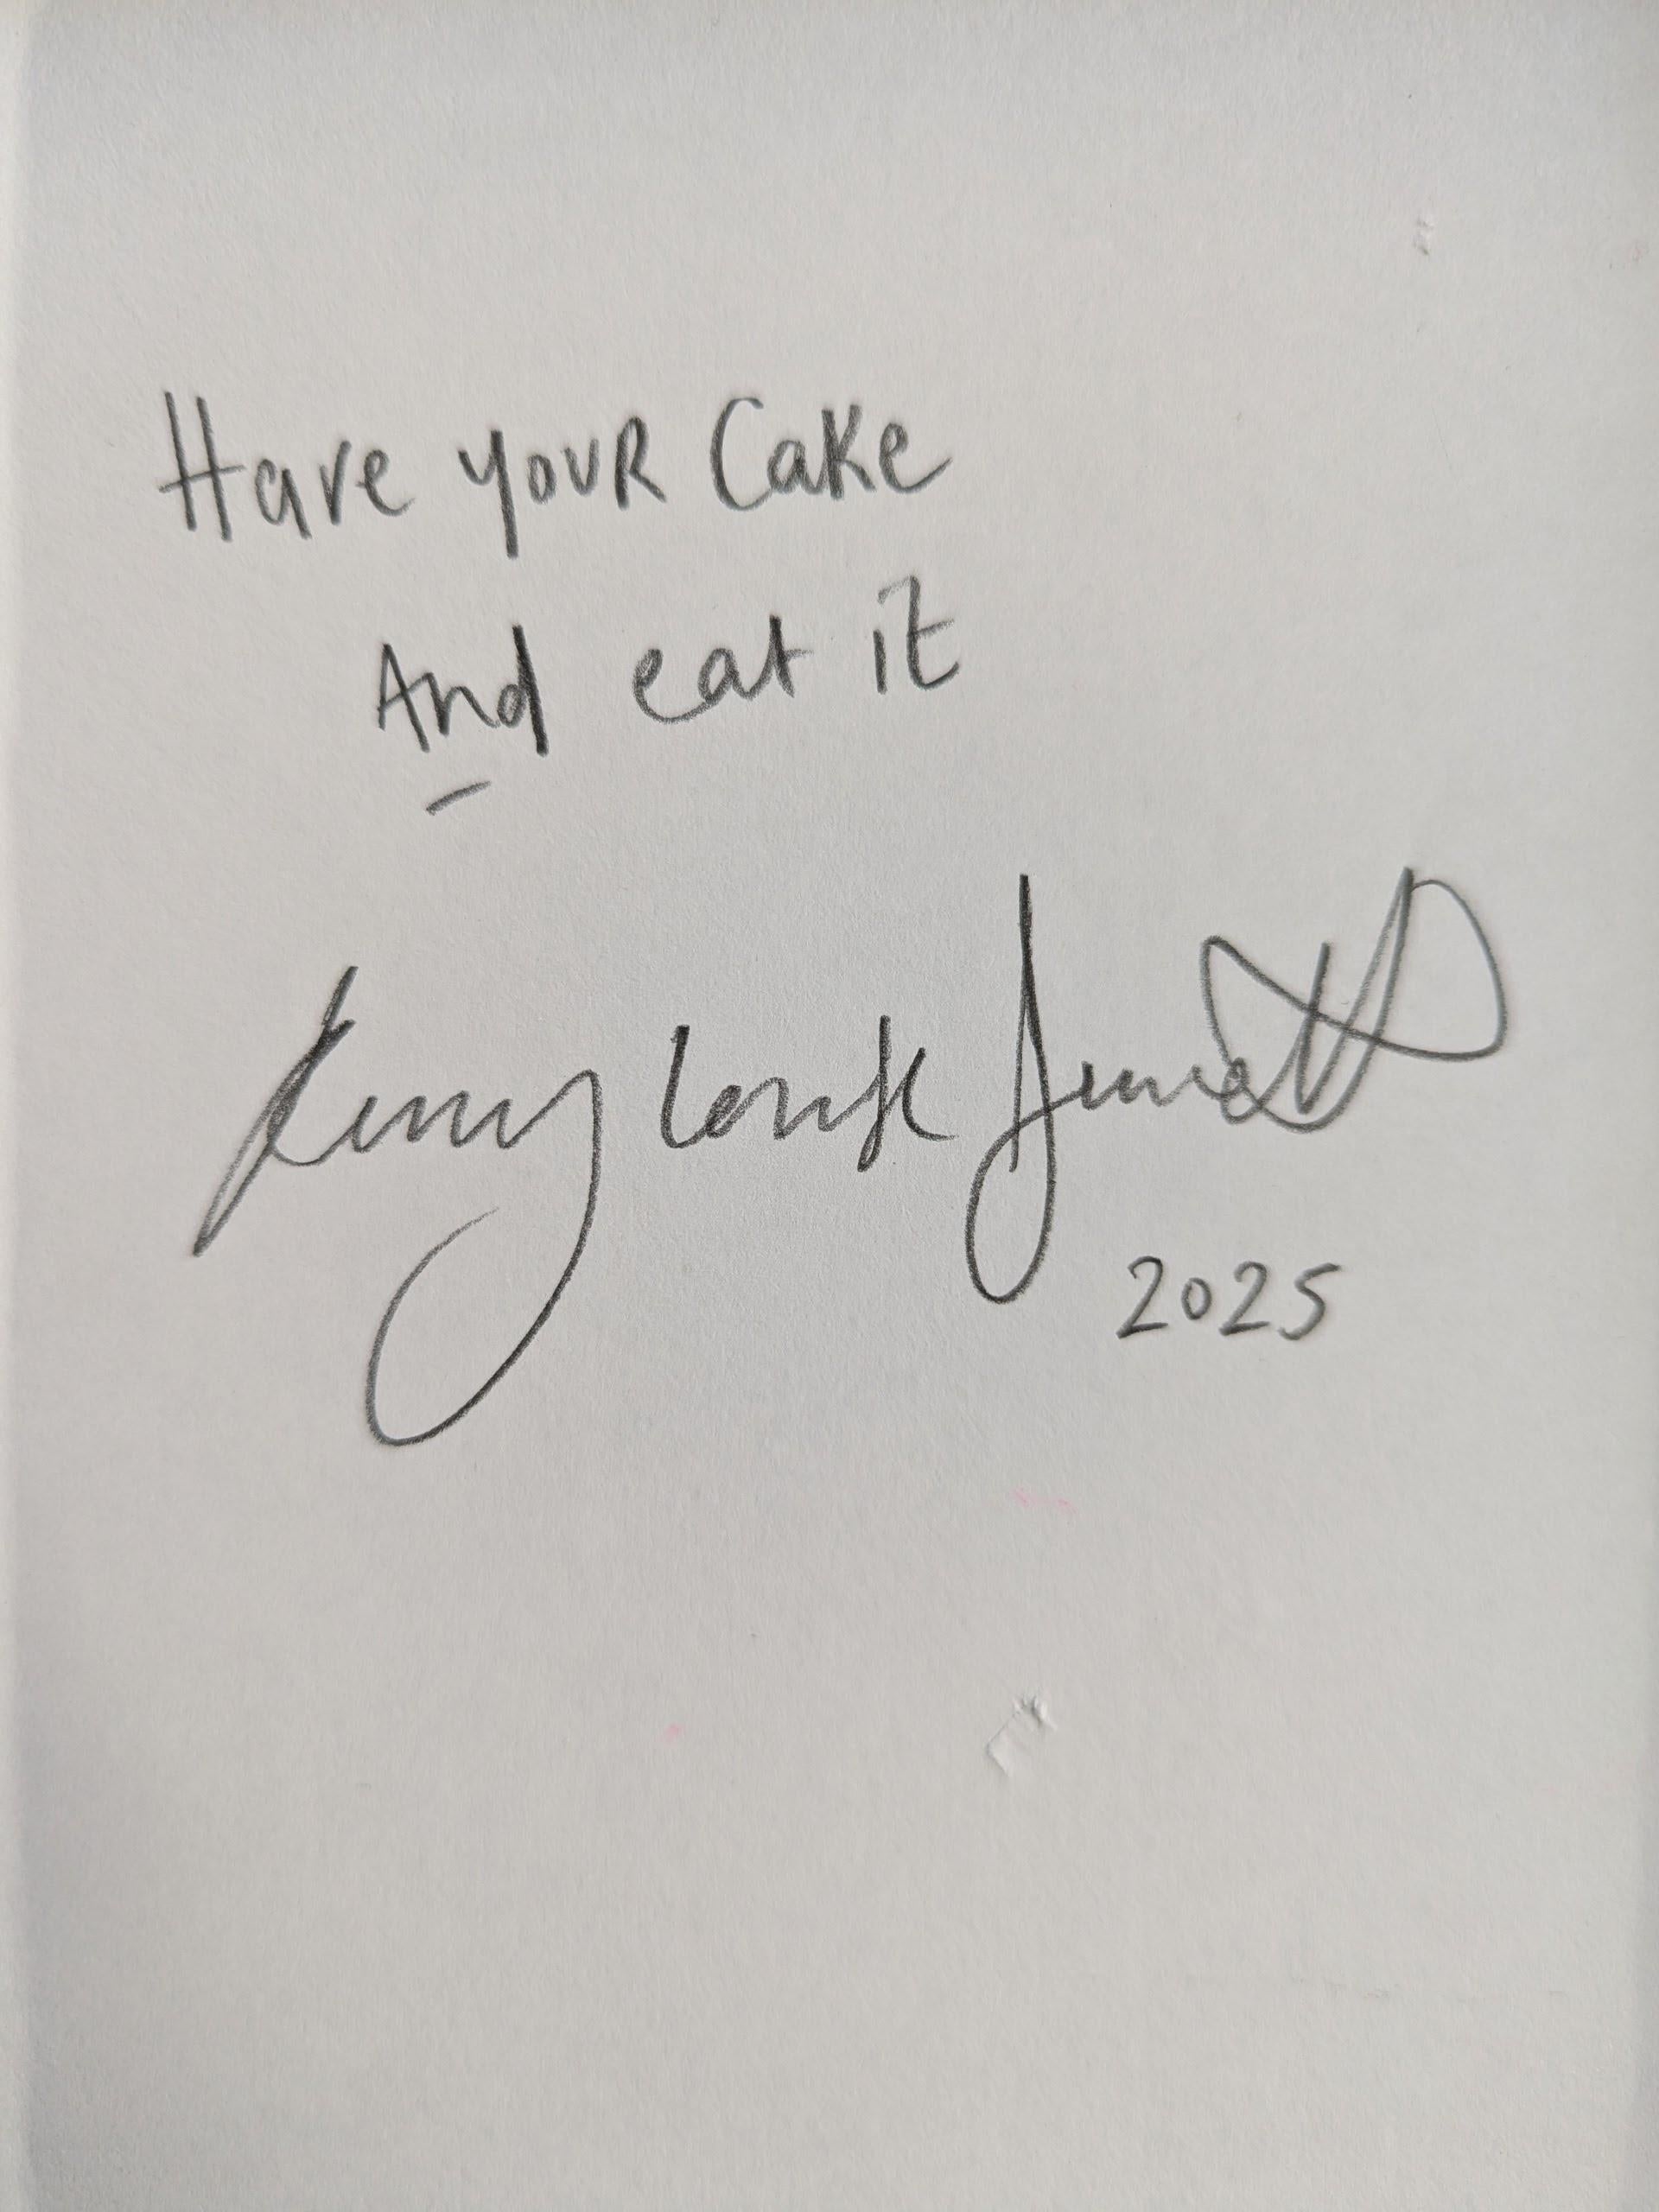 Have your Cake
And eat it
2025